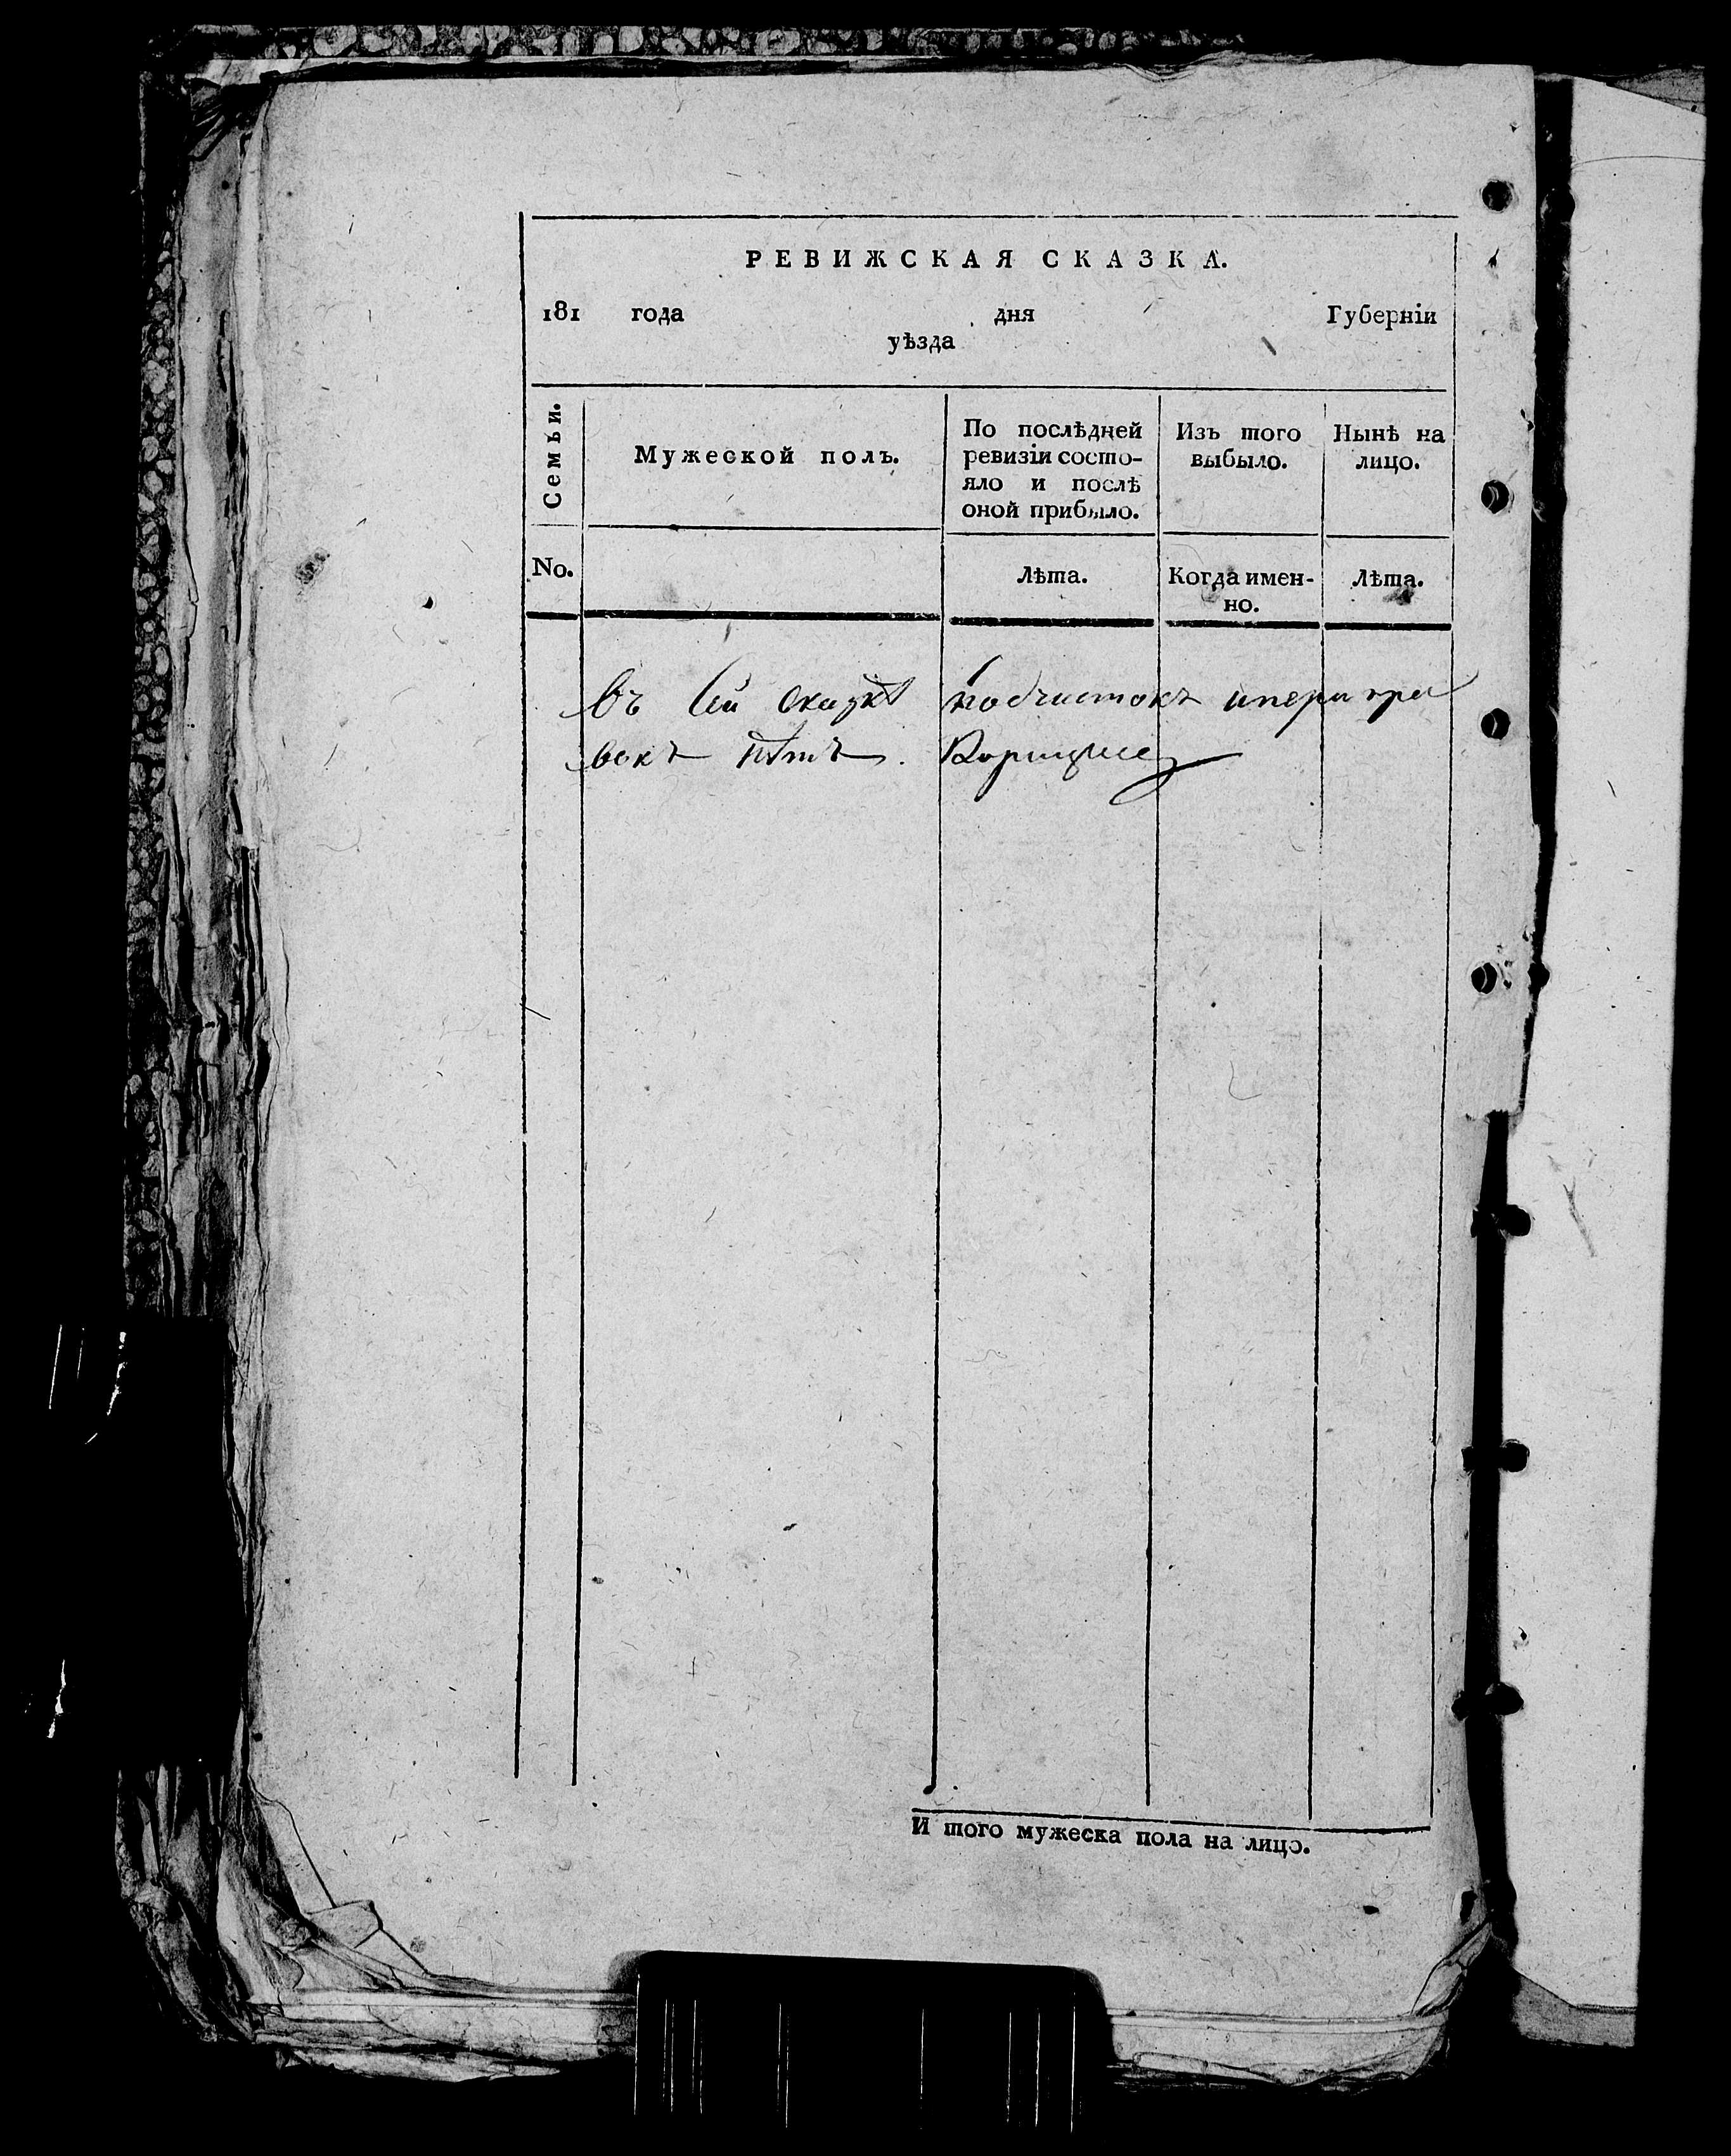 РЕВИЖСКАЯ СКАЗКА.
181 года дня Губернiи
уѣзда
Семьи.
Мужеской полъ.
По послѣдней
ревизiи состо-
яло и послѣ
оной прибыло.
Изъ того
выбыло.
Нынѣ на
лицо.
No.
Лѣта.
Когда имен-
но.
Лѣта.
въ сей сказкѣ подчистокъ ипери пра
вокъ нѣтъ.
И того мужеска пола на лицо.